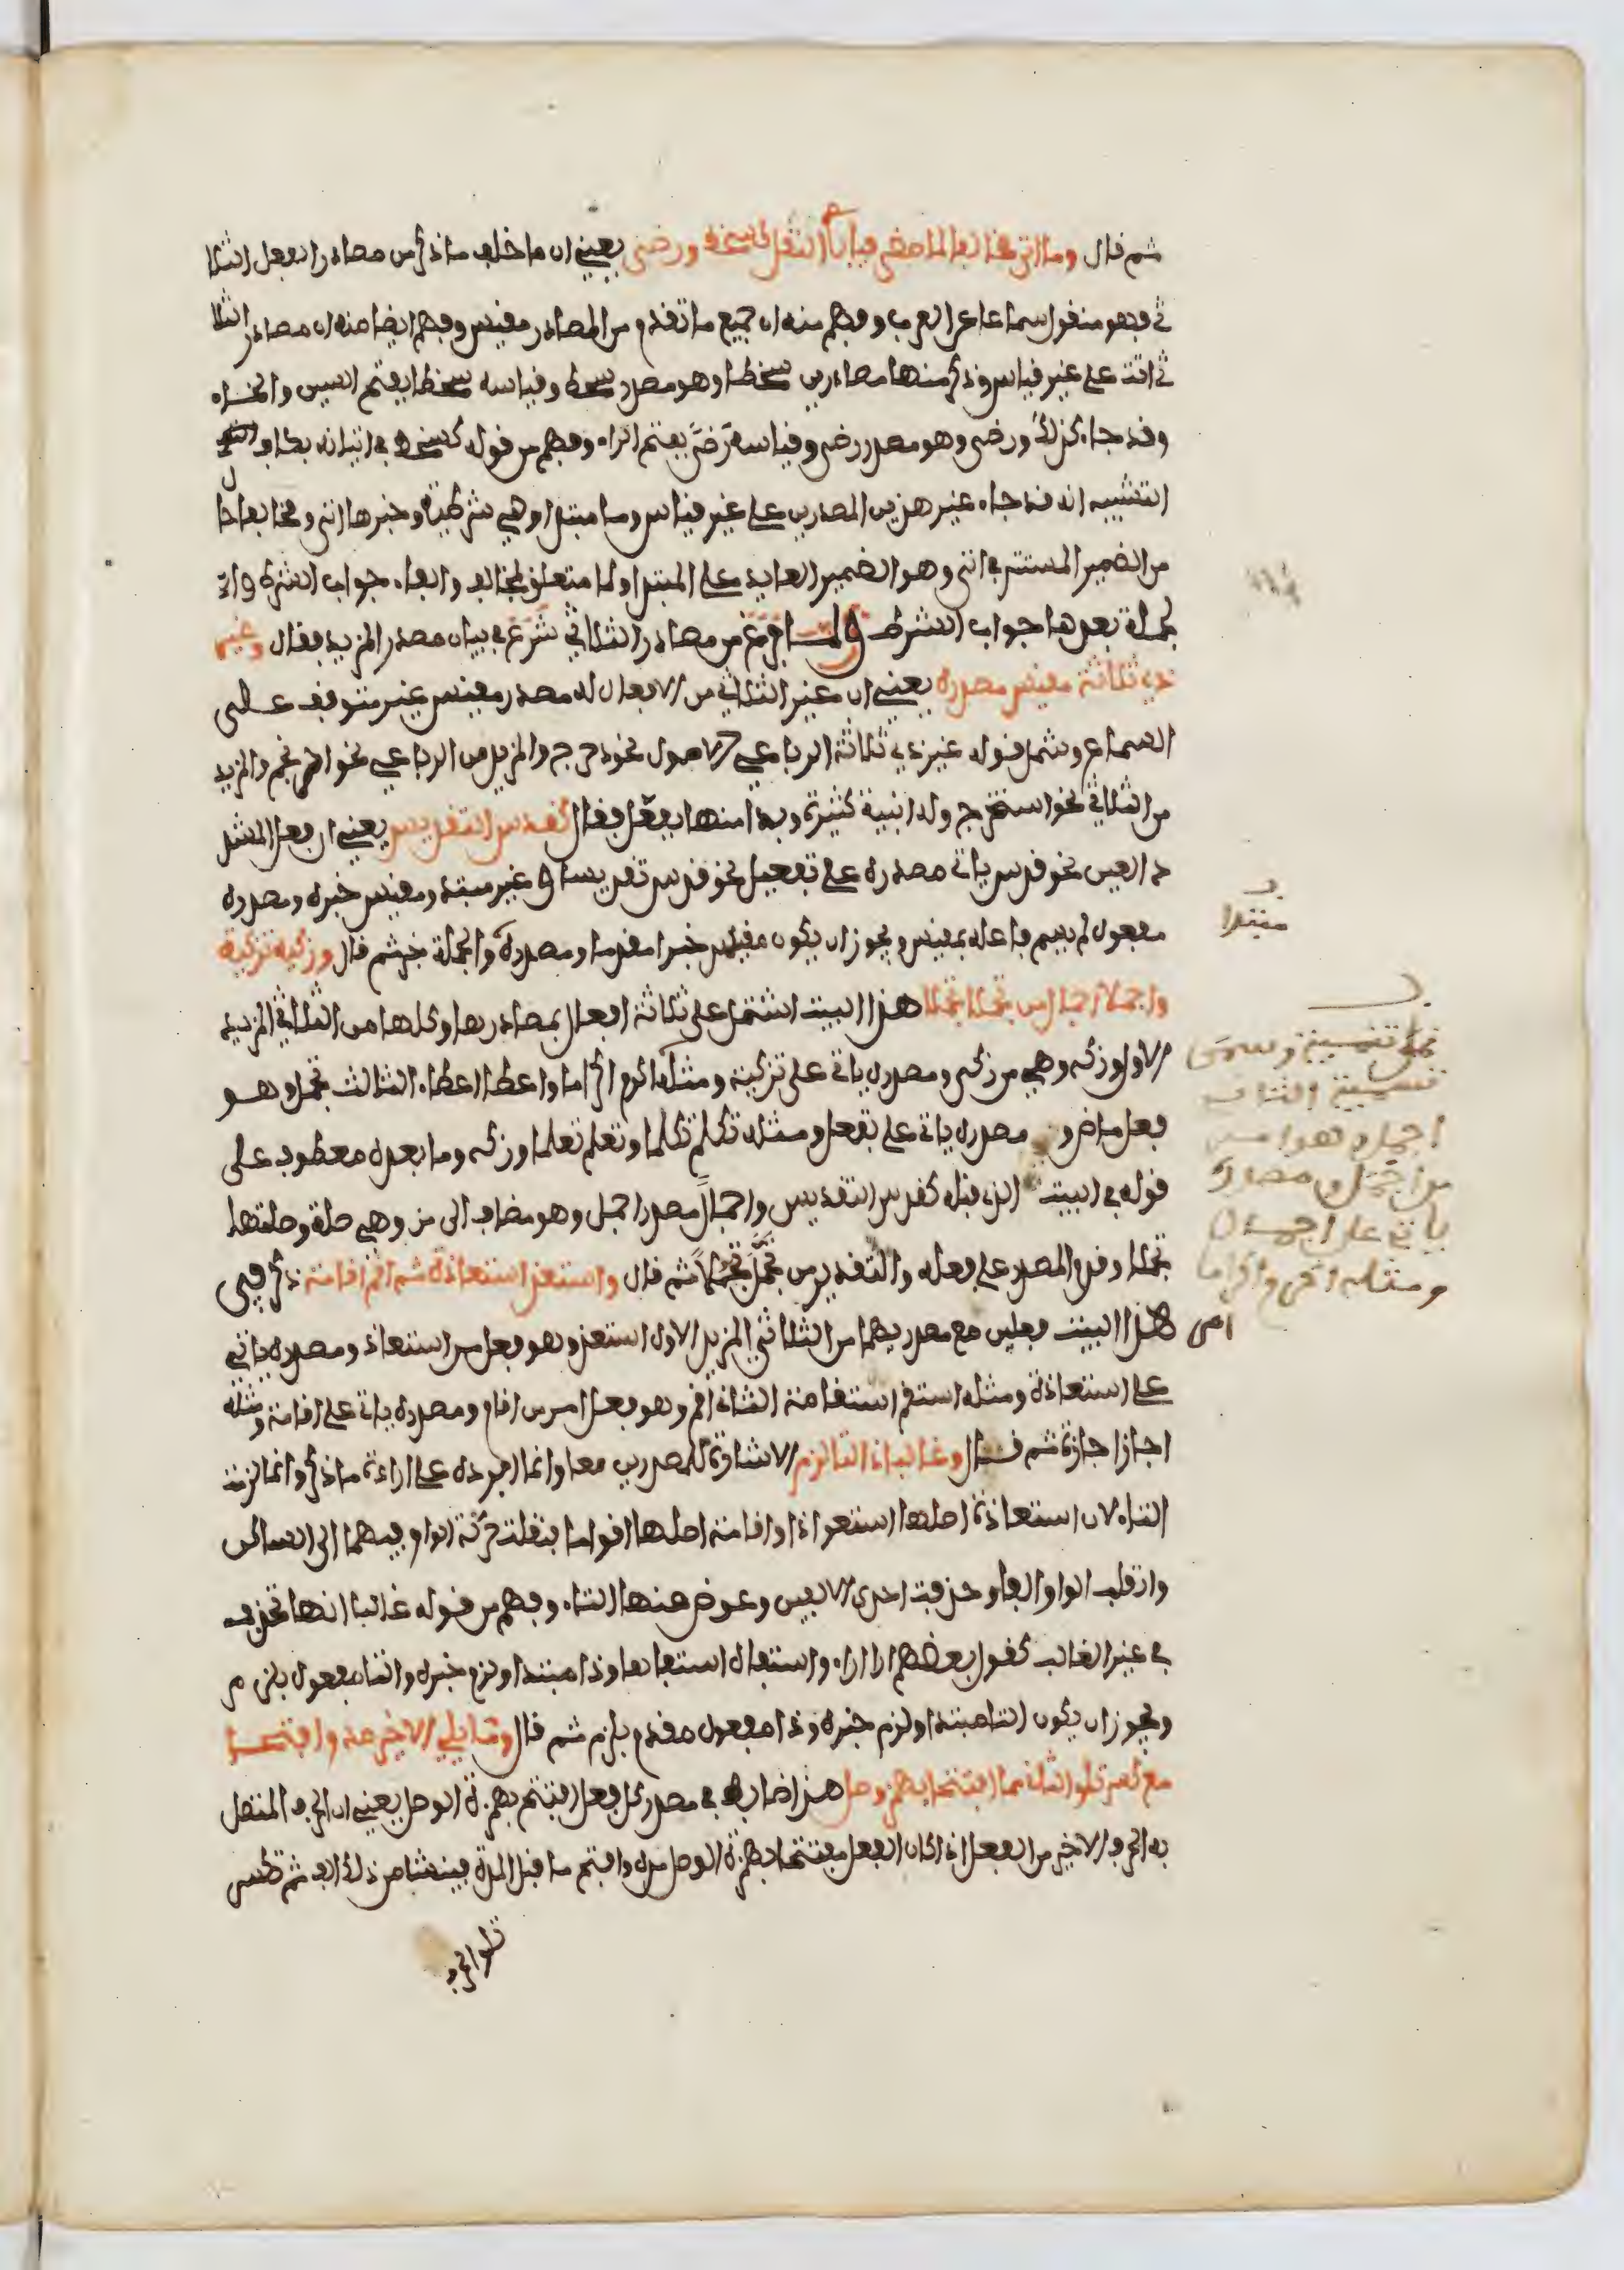 ثم قال وما اتى مخالفا لما مضى فبابه النقل كسخط ورضى يعني ان ما خالف ما ذكر من مصادر الفعل الثلا
ثي فهو منقول سماعا عن العرب وفهم منه ان جميع ما تقدم من المصادر مقيس وفهم ايضا منه ان مصادر الثلا
ثي اتت على غير قياس وذكر منها مصادرين سخطا وهو مصدر سخط وقياسه سخطا بفتح السين والخاء
وقد جاء كذلك ورضى وهو مصدر رضي وقياسه رَضىً بفتح الراء وفهم من قوله كسخط في اتيانه بكاف
التشبيه انه قد جاء غير هذين المصدرين على غير قياس وما مبتدا وهي شرطية وخبرها اتى ومخالفا حال
من الضمير المستتر في اتى وهو الضمير العايد على المبتدا ولما متعلق بمخالف والفاء جواب الشرط وا
لجملة بعدها جواب الشرط ولما فرغ من مصادر الثلاثي شرع في بيان مصدر المزيد فقال وغير
ذي ثلاثة مقيس مصدره يعني ان غير الثلاثي من الافعال له مصدر مقيس غير متوقف على
السماع وشمل قوله غير ذي ثلاثة الرباعي الاصول نحو دحرج والمزيد من الرباعي نحو احرنجم والمزيد
من الثلاثي نحو استخرج وله ابنية كثيرة وبدا منها بفعّل فقال كقدس التقديس يعني ان فعل المشد
د العين نحو قدس ياتي مصدره على تفعيل نحو قدس تقديسا وغير مبتدا ومقيس خبره ومصدره
مفعول لم يسم فاعله بمقيس ويجوز ان يكون مقيس خبرا مقدما ومصدره والجملة خبر ثم قال وزكه تزكية
واجملا اجمال من تجملا تجملا هذا البيت اشتمل على ثلاثة افعال بمصادرها وكلها من الثلاثي المزيد
الاول زكه وهي من زكى ومصدره ياتي على تزكية ومثله اكرم اكراما واعطا اعطاء الثالث تجمل وهو
فعل ماض ومصدره ياتي على تفعل ومثله تكلم تكلما وتعلم تعلما وزكه وما بعده معطوف على
قوله في البيت الذي قبله كقدس التقديس واجمال مصدر اجمل وهو مضاف الى من وهي صلة وصلتها
تجملا وقدم المصدر على فعله والتقدير من تجمّل تجمّلاً ثم قال واستعذ استعاذة ثم اقم اقامة ذكر في
هذا البيت فعلين مع مصدريهما من الثلاثي المزيد الاول استعذ وهو فعل من استعاذ ومصدره ياتي
على استعاذة ومثله استقم استقامة الثاني اقم وهو فعل امر من اقام ومصدره ياتي على اقامة ومثله
اجاز اجازة ثم قال وغالبا ذا التا لزم الاشارة للمصدرين معا وانما افرده على ارادة ما ذكر وانما لزمت
التاء لان استعاذة اصلها استعواذا واقامة اصلها اقواما فنقلت حركة الواو فيهما الى الساكن
وانقلب الواو الفا وحذفت احدى الالفين وعوض منها التاء وفهم من قوله غالبا انها تحذف
في غير الغالب كقول بعضهم اراء اراء واستفاه استفاها وذا مبتدا ولزم خبره والتا مفعول بلزم
ويجوز ان يكون التا مبتدا ولزم خبره وذا مفعول مقدم بلزم ثم قال وما يلي الاخر مد وافتحا
مع كسر تلو الثان مما افتتحا بهمز وصل هذا ضابط في مصدر كل فعل افتتح بهمزة الوصل يعني ان الحرف المتصل
به الحرف الاخير من الفعل اذا كان الفعل مفتتحا بهمزة الوصل مد وافتح ما قبل المدة فينشا من ذلك الف ثم تكسر
تلو الحرف
مبتدا
اجمل وهو امر
من اجمل ومصدره
ياتي على اجمال
ومثله اكرم واكراما